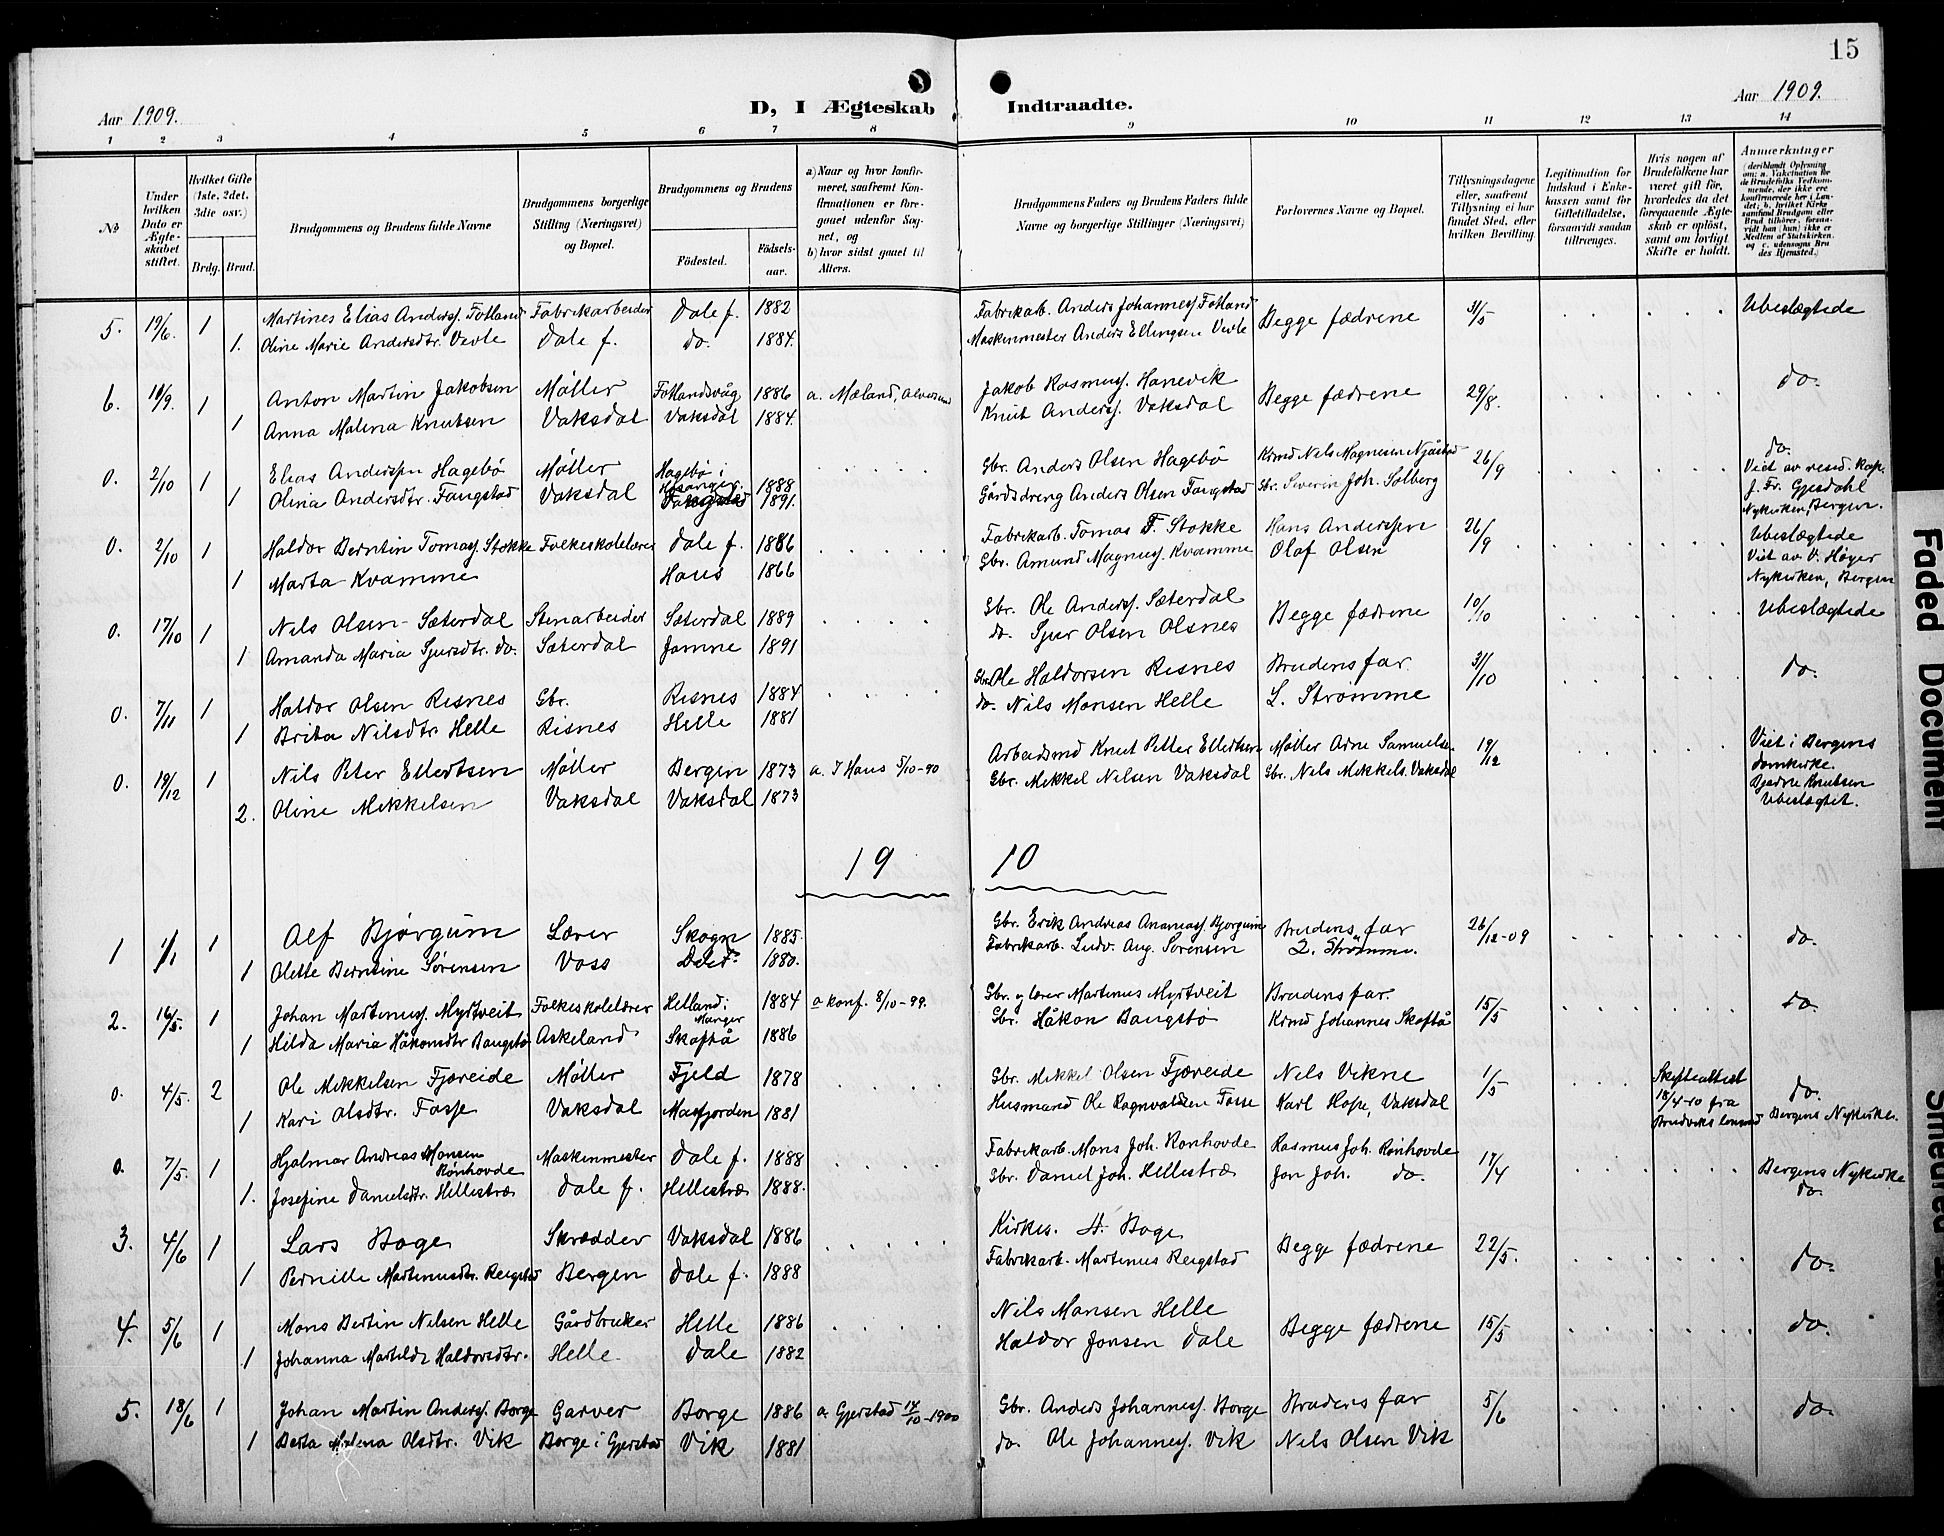 15
Aar 1909.
D, I Ægteskab Indtraadte.
Aar 1909.
1 2 3 4 5 6 7 8 9 10 11 12 13 14
№
Under hvilken Dato er Ægteskabet stiftet.
Hvilket Gifte (1ste, 2det, 3die osv.)
Brdg. Brud.
Brudgommens og Brudens fulde Navne
Brudgommens borgerlige Stilling (Næringsvei) og Bopæl.
Brudgommens og Brudens
Fødested. Fødsels-aar.
a) Naar og hvor konfirmeret, saafremt Konfirmationen er foregaaet udenfor Sognet, og b) hvor sidst gaaet til Alters.
Brudgommens Faders og Brudens Faders fulde Navne og borgerlige Stillinger (Næringsvei)
Forlovernes Navne og Bopæl.
Tillysningsdagene eller, saafremt Tillysning ei har fundet Sted, efter hvilken Bevilling.
Legitimation for Indskud i Enkekassen samt for Giftetilladelse, forsaavidt saadan tiltrænges.
Hvis nogen af Brudefolkene har været gift før, hvorledes da det foregaaende Ægteskab er opløst, samt om lovligt Skifte er holdt.
Anmerkninger (deriblandt Oplysning om: a. Vakcination for de Brudefolks Vedkommende, der ikke ere konfirmerede her i Landet, b. hvilket Kirkesamfund Brudgom eller Brud tilhører, forsaavidt han (hun) ikke er Medlem af Statskirken, og c. udensogns Brudes Hjemsted.)
5. 19/6. 1 Martines Elias Anderss. Fotland Fabrikarbeider Dale f. 1882 Fabrikarb. Anders Johanness. Fotland Begge fædrene 31/5 Ubeslægtede
1. Oline Marie Andersdtr. Vevle Dale f. do. 1884. Maskinmester Anders Ellingsen Vevle
6. 19/9. 1 Anton Martin Jakobsen Møller Fotlandsvåg 1886 a. Mæland, Alversund Jakob Rasmuss. Hanevik Begge fædrene 29/8. do.
1 Anna Malena Knutsen Vaksdal Vaksdal 1884. Knut Anderss. Vaksdal
0. 2/10 1 Elias Anderssen Hagebø Møller Hagebø i Hosanger. 1888 Gbr. Anders Olsen Hagebø Krmd Nils Magnesen Njåstad 26/9 do.
1 Olina Andersdtr. Fangstad Vaksdal Fangstad 1891. Gårdsdreng Anders Olsen Fangstad Gbr. Severin Joh. Solberg
Viet av resid. kap. J. Fr. Gjesdahl
Nykirken, Bergen.
0. 2/10 1 Haldor Berntin Tomass. Stokke Folkeskolelærer Dale f. 1886 Fabrikarb. Tomas T. Stokke Hans Anderssen 26/9 Ubeslægtede
1 Marta Kvamme Haus 1866 Gbr. Amund Magnuss. Kvamme Olaf Olsen
Viet av V. Høyer
Nykirken, Bergen
0. 17/10 1 Nils Olsen Sæterdal Stenarbeider Sæterdal 1889 Gbr. Ole Anderss. Sæterdal Begge fædrene 10/10 Ubeslægtede
1 Amanda Maria Sjursdtr. do. Sæterdal Jamne 1891 do. Sjur Olsen Olsnes
0. 7/11 1 Haldor Olsen Risnes Gbr. Risnes 1884 Gbr. Ole Haldorsen Risnes Brudens far 31/10 do.
1 Brita Nilsdtr Helle Risnes Helle 1881 do. Nils Monsen Helle L. Strømme
0. 19/12 1 Nils Peter Ellertsen Møller Bergen 1873 a. I Haus 5/10-90 Arbeidsmd Knut Petter Ellertsen Møller Arne Samuelsen 19/12 Viet i Bergens domkirke.
2. Oline Mikkelsen Vaksdal Vaksdal 1873 Gbr. Mikkel Nilsen Vaksdal Gbr. Nils Mikkels. Vaksdal
Bjarne Knutsen
Ubeslægtet.
19 10
1 1/1 1 Alf Bjørgum Lærer Skogn 1885. Gbr. Erik Andreas Ananiass. Bjorgum Brudens far 26/12-09 do.
1 Olette Berntine Sørensen Voss Dale f. 1880. Fabrikarb. Ludv. Aug. Sørensen L. Strömme.
2. 16/5. 1 Johan Martinuss. Myrtveit Folkeskolelærer Helland: Manger 1884 a konf. 8/10-99. Gbr. og lærer Martinus Myrtveit Brudens far. 15/5 do.
1 Hilda Maria Håkonsdtr Baugstø Askeland Skaftå 1886 Gbr. Håkon Baugstø Krmd Johannes Skaftå
0. 4/5. 2 Ole Mikkelsen Fjæreide Møller Fjeld 1878 Gbr. Mikkel Olsen Fjæreide Nils Vikne 1/5 Skifteattest 18/4-10 fra Bruviks lensmd do.
1 Kari Olsdtr. Fosse Vaksdal Masfjorden 1881 Husmand Ole Ragnvaldsen Fosse Karl Hope, Vaksdal Bergens Nykirke.
0. 7/5. 1 Hjalmar Andreas Monsen Rønhovde Maskinmester Dale f. 1888 Fabrikarb. Mons Joh. Rønhovde Rasmus Joh. Rønhovde 17/4 Bergens Nykirke
1. Josefine Danielsdtr. Hellestræ Dale f. Hellestræ 1888. Gbr. Daniel Joh. Hellestræ Jon Joh. do. do.
3. 4/6 1 Lars Boge Skrædder Vaksdal 1886 Kirkes. A. Boge Begge fædrene 22/5. do.
1 Pernille Martinusdtr. Reigstad Bergen Dale f. 1888 Fabrikarb. Martinus Reigstad
4. 5/6 1 Mons Bertin Nilsen Helle Gårdbruker Helle 1886 Nils Monsen Helle Begge fædrene 15/5 do.
1 Johanna Matilde Haldorsdtr. Helle. Dale 1882 Haldor Jonsen Dale
5. 18/6 1 Johan Martin Anderss. Borge Garver Borge 1886 a. Gjerstad 14/10-1900 Gbr. Anders Johanness. Borge Brudens far 5/6 do.
1 Berta Malena Olsdtr. Vik Borge i Gjerstad Vik 1881 do. Ole Johanness. Vik Nils Olsen Vik
Faded Document
Smeared